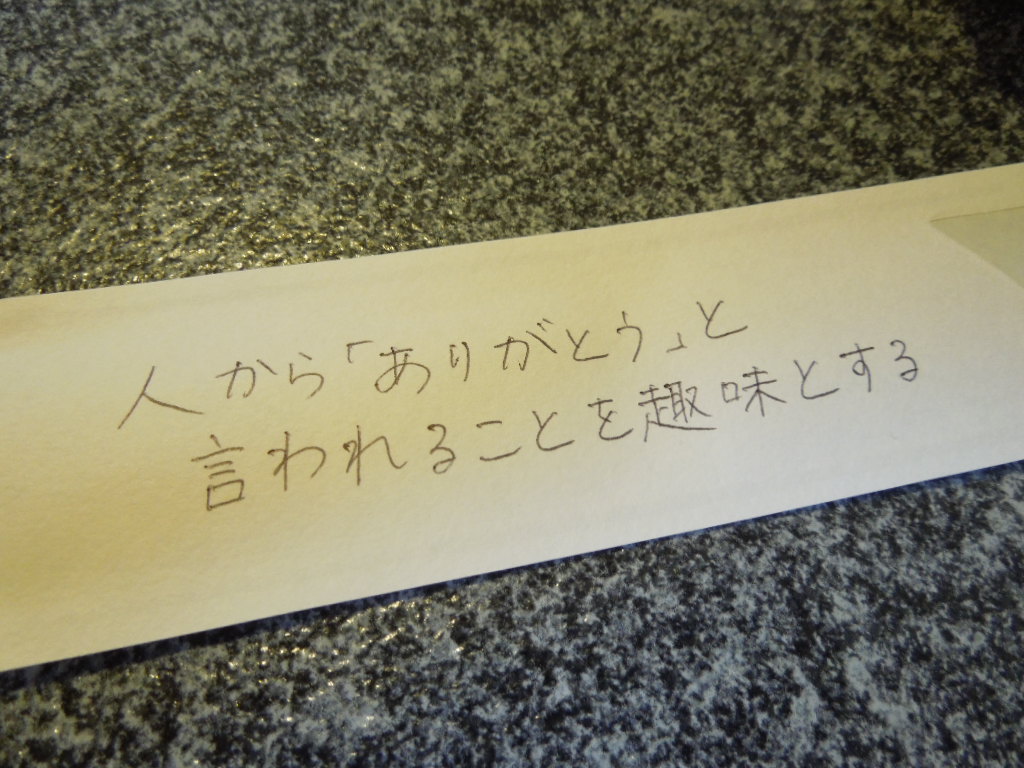 人から「ありがとう」と
言われることを趣味とする